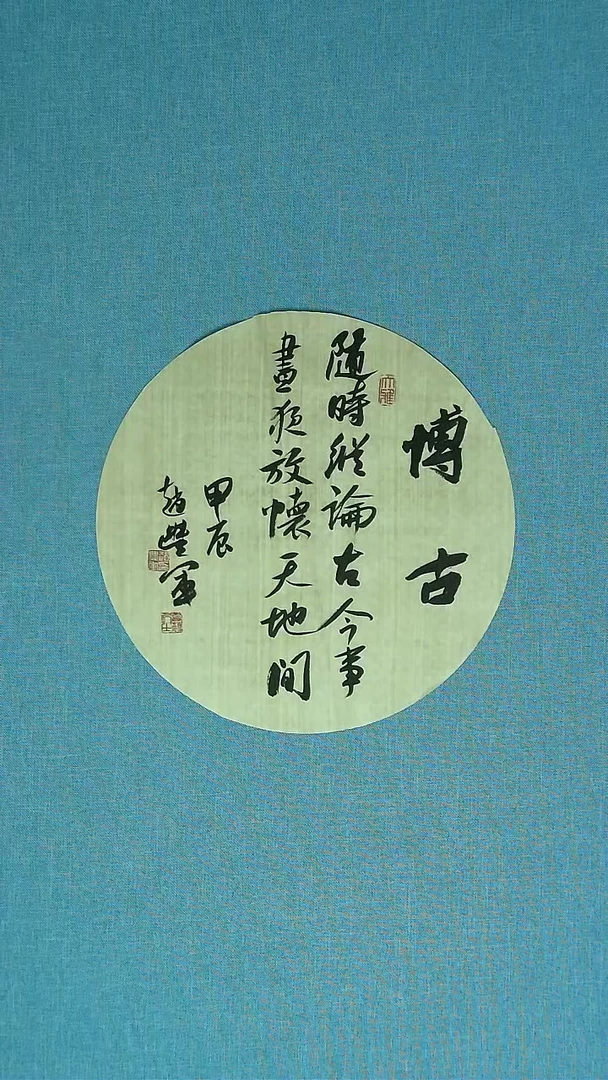 博古
隨時縱論古今事
晝夜放懷天地間
甲辰
趙豐軍
大雅